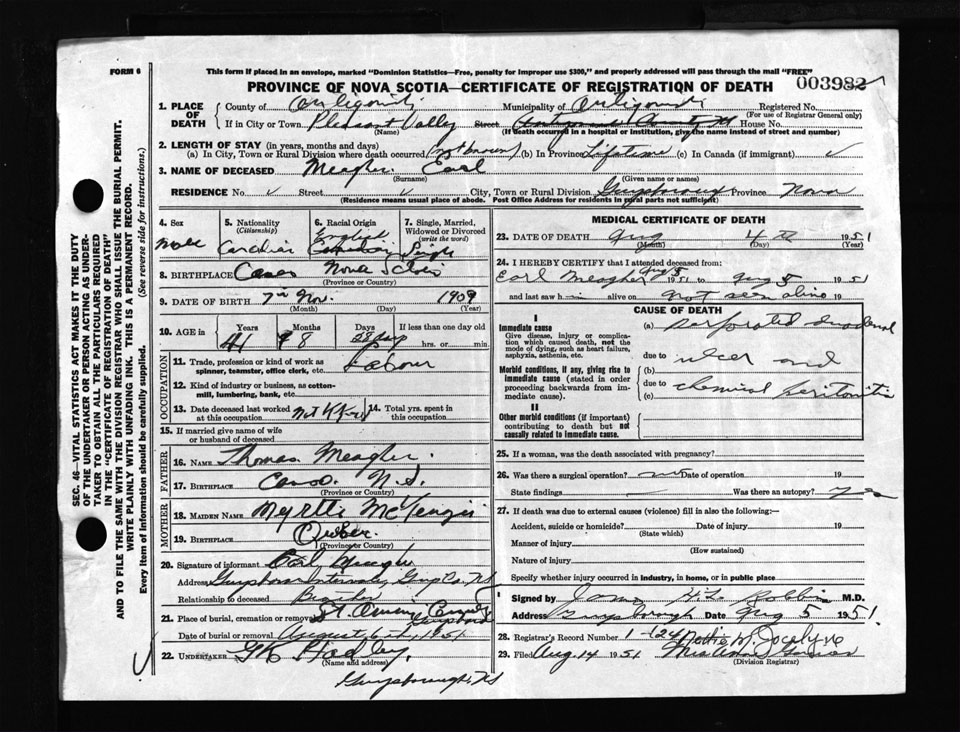 FORM 6
This form if placed in an envelope, marked "Dominion Statistics—Free, penalty for improper use $300," and properly addressed will pass through the mail "FREE"
PROVINCE OF NOVA SCOTIA—CERTIFICATE OF REGISTRATION OF DEATH
003982
1. PLACE OF DEATH
County of
Municipality of
Registered No.
(For use of Registrar General only)
If in City or Town Pleasant Valley Street House No.
(Name) (If death occurred in a hospital or institution, give the name instead of street and number)
2. LENGTH OF STAY (in years, months and days)
(a) In City, Town or Rural Division where death occurred (not known) (b) In Province Lifetime (c) In Canada (if immigrant) ✓
3. NAME OF DECEASED Meagher Earl
(Surname) (Given name or names)
RESIDENCE No. ✓ Street ✓ City, Town or Rural Division Province Nova
(Residence means usual place of abode. Post Office Address for residents in rural parts not sufficient)
4. Sex
Male
5. Nationality
(Citizenship)
Canadian
6. Racial Origin
English
7. Single, Married,
Widowed or Divorced
(write the word)
Single
8. BIRTHPLACE Canso Nova Scotia
(Province or Country)
9. DATE OF BIRTH 7th Nov. 1909
(Month) (Day) (Year)
10. AGE in
Years Months Days If less than one day old
41 8 28 days hrs. or min.
OCCUPATION
11. Trade, profession or kind of work as
spinner, teamster, office clerk, etc. Labour
12. Kind of industry or business, as cotton-
mill, lumbering, bank, etc.
13. Date deceased last worked
at this occupation Not Known
14. Total yrs. spent in
this occupation
15. If married give name of wife
or husband of deceased
FATHER
16. NAME Thomas Meagher
17. BIRTHPLACE Canso. N.S.
(Province or Country)
MOTHER
18. MAIDEN NAME Myrtle McKenzie
19. BIRTHPLACE Quebec.
(Province or Country)
20. Signature of informant
Address Guysboro Intervale, Guy Co. NS
Relationship to deceased Brother
21. Place of burial, cremation or removal St. Cemetery Guysboro
Date of burial or removal August 6th, 1951
22. UNDERTAKER GK Hadley,
(Name and address)
Guysborough, NS
MEDICAL CERTIFICATE OF DEATH
23. DATE OF DEATH Aug 4th 1951
(Month) (Day) (Year)
24. I HEREBY CERTIFY that I attended deceased from:
Earl Meagher Aug 5 1951 to Aug 5 1951
and last saw h alive on not seen alive 19
CAUSE OF DEATH
I
Immediate cause
Give disease, injury or complica-
tion which caused death, not the
mode of dying, such as heart failure,
asphyxia, asthenia, etc.
(a) perforated duodenal
due to ulcer and
Morbid conditions, if any, giving rise to
immediate cause (stated in order
proceeding backwards from im-
mediate cause).
(b)
due to
(c) chemical peritonitis
II
Other morbid conditions (if important)
contributing to death but not
causally related to immediate cause.
25. If a woman, was the death associated with pregnancy?
26. Was there a surgical operation? no Date of operation 19
State findings Was there an autopsy? yes
27. If death was due to external causes (violence) fill in also the following:—
Accident, suicide or homicide? Date of injury 19
(State which)
Manner of injury
(How sustained)
Nature of injury
Specify whether injury occurred in industry, in home, or in public place
Signed by M.D.
Address Guysborough Date Aug 5 1951
28. Registrar's Record Number
29. Filed Aug. 14 1951
(Division Registrar)
SEC. 46—VITAL STATISTICS ACT MAKES IT THE DUTY
OF THE UNDERTAKER OR PERSON ACTING AS UNDER-
TAKER TO OBTAIN ALL THE PARTICULARS REQUIRED
IN THE "CERTIFICATE OF REGISTRATION OF DEATH"
AND TO FILE THE SAME WITH THE DIVISION REGISTRAR WHO SHALL ISSUE THE BURIAL PERMIT.
WRITE PLAINLY WITH UNFADING INK. THIS IS A PERMANENT RECORD.
Every item of information should be carefully supplied. (See reverse side for instructions.)